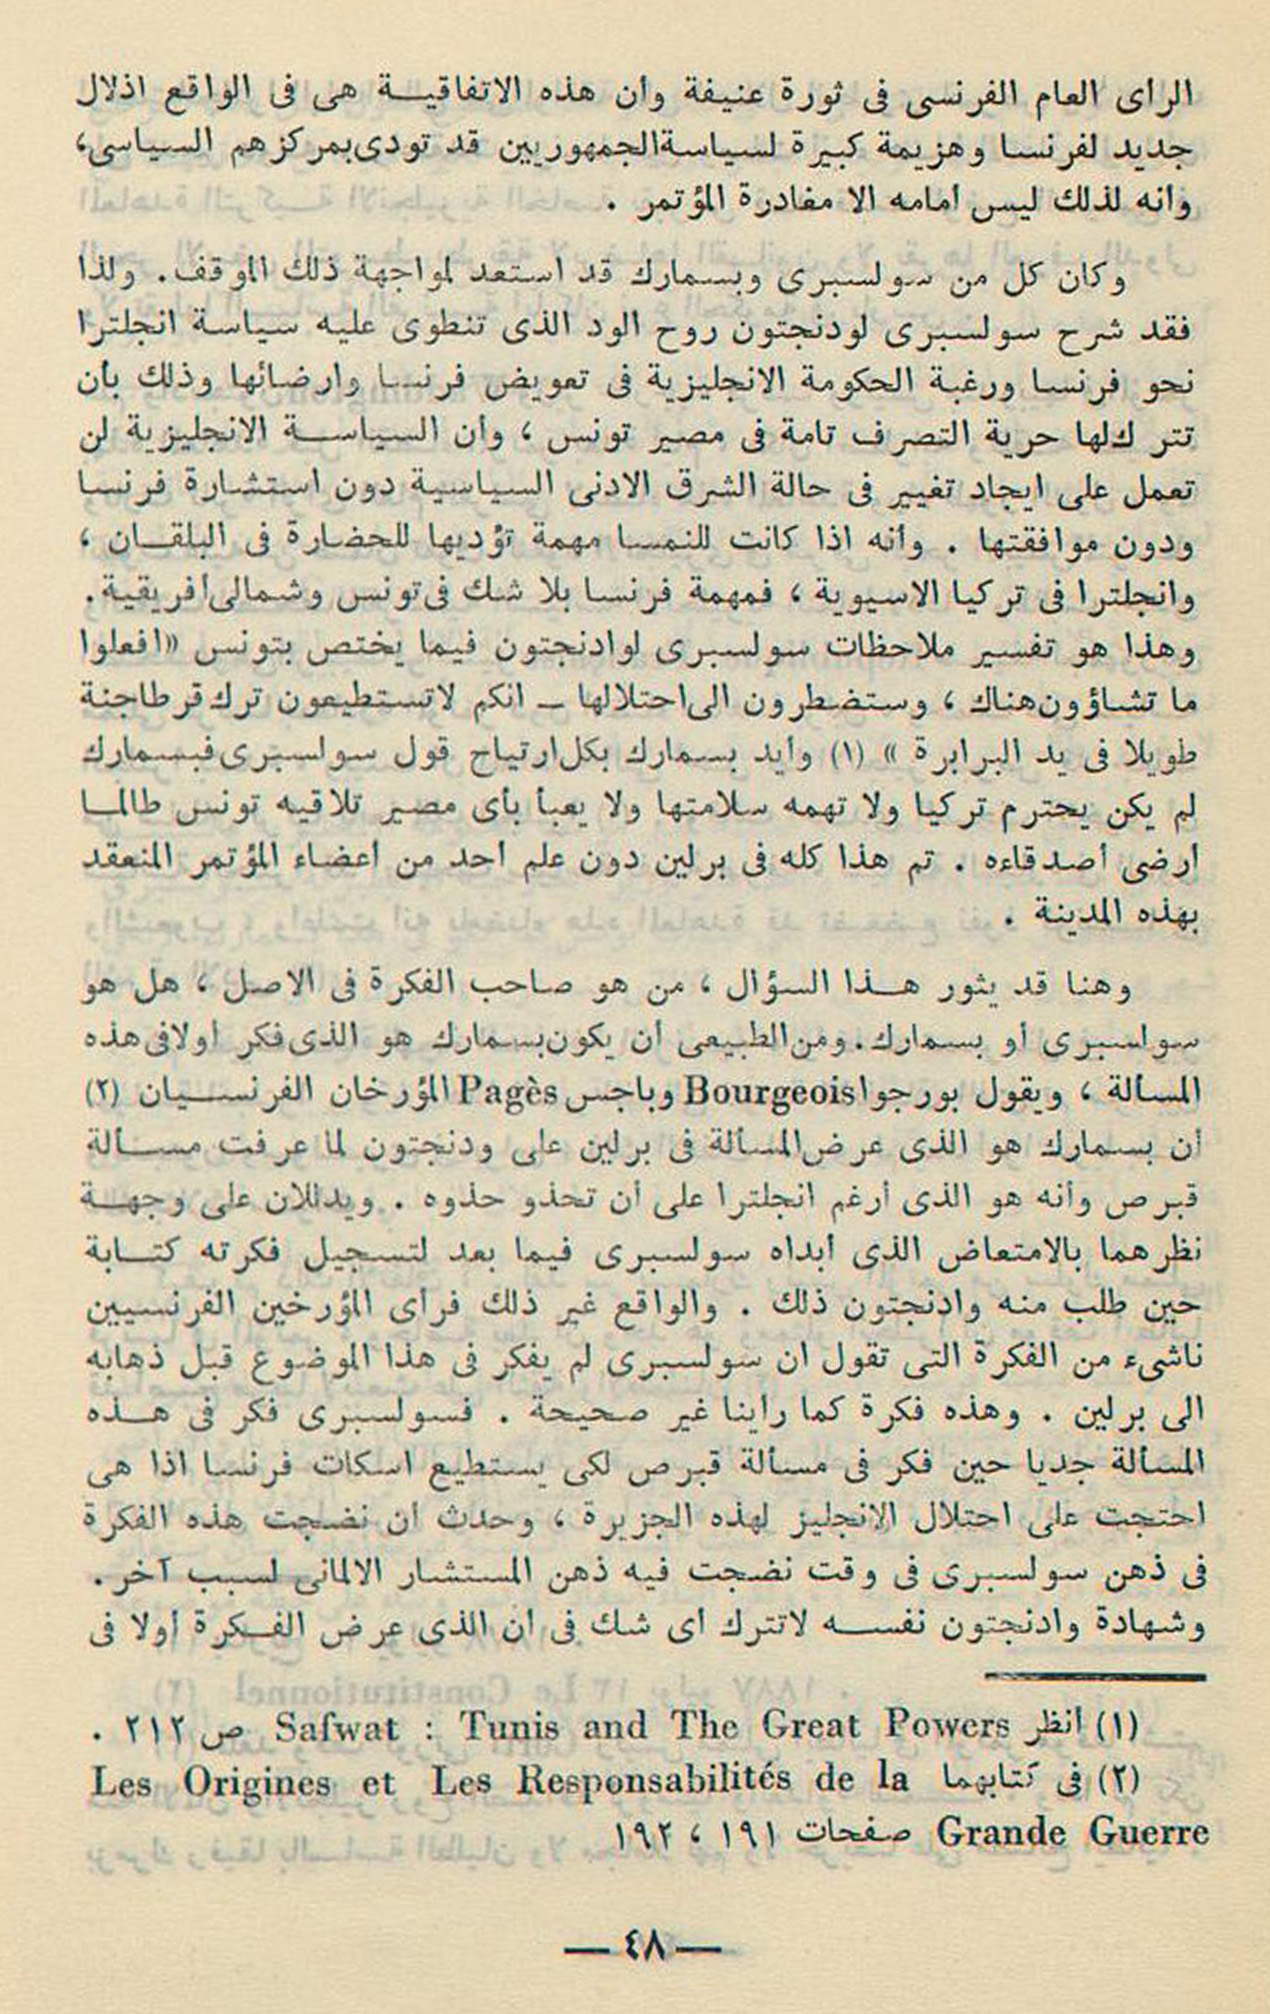 الرأى العام الفرنسى فى ثورة عنيفة وأن هذه الاتفاقيــة هى فى الواقع اذلال
جديد لفرنسا وهزيمة كبيرة لسياسةالجمهوريين قد تودى بمركزهم السياسى،
وأنه لذلك ليس أمامه الا مغادرة المؤتمر .
وكان كل من سولسبرى وبسمارك قد استعد لمواجهة ذلك الموقف. ولذا
فقد شرح سولسبرى لودنجتون روح الود الذى تنطوى عليه سياسة انجلترا
نحو فرنسا ورغبة الحكومة الانجليزية فى تعويض فرنسا وارضائها وذلك بأن
تترك لها حرية التصرف تامة فى مصير تونس ، وأن السياســة الانجليزية لن
تعمل على ايجاد تغيير فى حالة الشرق الادنى السياسية دون استشارة فرنسا
ودون موافقتها . وأنه اذا كانت للنمسا مهمة تؤديها للحضارة فى البلقــان ،
وانجلترا فى تركيا الاسيوية ، فمهمة فرنسا بلا شك فى تونس وشمالى أفريقية.
وهذا هو تفسير ملاحظات سولسبرى لوادنجتون فيما يختص بتونس «افعلوا
ما تشاؤون هناك ، وستضطرون الى احتلالها ــ انكم لاتستطيعون ترك قرطاجنة
طويلا فى يد البرابرة » (١) وأيد بسمارك بكل ارتياح قول سولسبرى فبسمارك
لم يكن يحترم تركيا ولا تهمه سلامتها ولا يعبأ بأى مصير تلاقيه تونس طالمــا
أرضى أصدقاءه . تم هذا كله فى برلين دون علم أحد من أعضاء المؤتمر المنعقد
بهذه المدينة .
وهنا قد يثور هــذا السؤال ، من هو صاحب الفكرة فى الاصل ، هل هو
سولسبرى أو بسمارك. ومن الطبيعى أن يكون بسمارك هو الذى فكر أولا فى هذه
المسألة ، ويقول بورجوا Bourgeois وباجس Pagès المؤرخان الفرنســيان (٢)
أن بسمارك هو الذى عرض المسألة فى برلين على ودنجتون لما عرفت مســألة
قبرص وأنه هو الذى أرغم انجلترا على أن تحذو حذوه . ويدللان على وجهــة
نظرهما بالامتعاض الذى أبداه سولسبرى فيما بعد لتسجيل فكرته كتــابة
حين طلب منه وادنجتون ذلك . والواقع غير ذلك فرأى المؤرخين الفرنسيين
ناشىء من الفكرة التى تقول ان سولسبرى لم يفكر فى هذا الموضوع قبل ذهابه
الى برلين . وهذه فكرة كما رأينا غير صحيحة . فسولسبرى فكر فى هــذه
المسألة جديا حين فكر فى مسألة قبرص لكى يستطيع اسكات فرنسا اذا هى
احتجت على احتلال الانجليز لهذه الجزيرة ، وحدث أن نضجت هذه الفكرة
فى ذهن سولسبرى فى وقت نضجت فيه ذهن المستشار الالمانى لسبب آخر.
وشهادة وادنجتون نفســه لاتترك أى شك فى أن الذى عرض الفــكرة أولا فى
(١) أنظر Safwat : Tunis and The Great Powers ص ٢١٢ .
(٢) فى كتابهما Les Origines et Les Responsabilités de la
Grande Guerre صفحات ١٩١ ، ١٩٢
— ٤٨ —